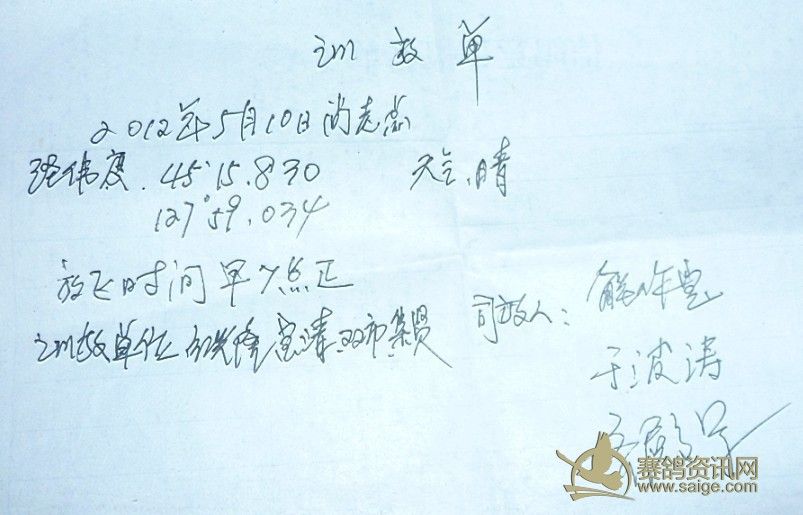 训放单
2012年5月10日尚志
经纬度.45°15.830 天气.晴
127°59.034
放飞时间早7点正
训放单位 宝清 双市 集贤 司放人:
于波涛
赛鸽资讯网
www.saige.com